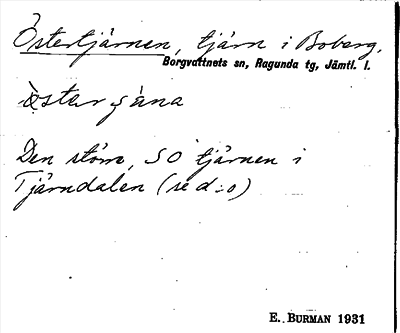 Östertjärnen, tjärn i Boberg,
Borgvattnets sn, Ragunda tg, Jämtl. l.
Den större, SO tjärnen i
Tjärndalen (se d:o)
E. BURMAN 1931